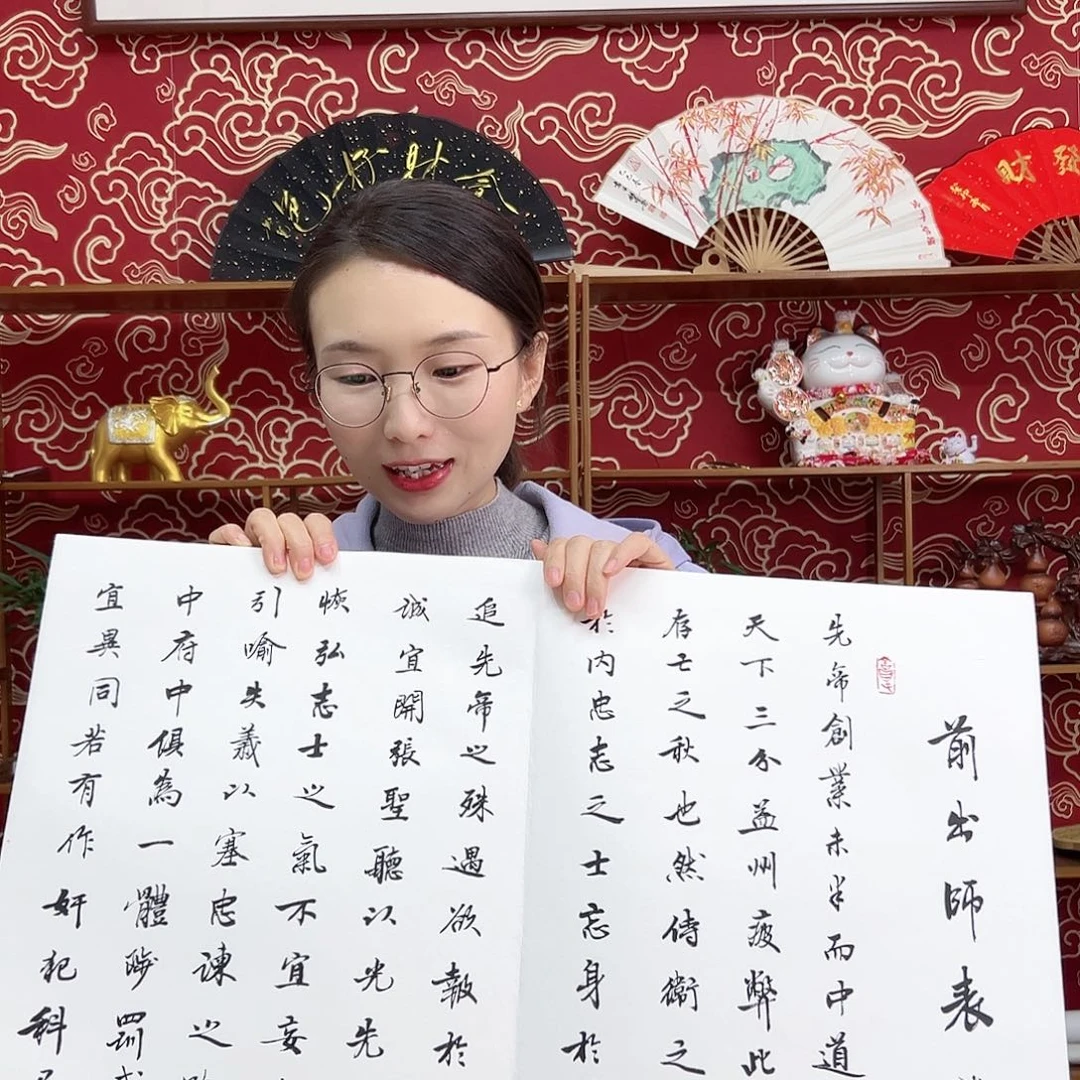 發財
前出師表
先帝創業未半而中道
天下三分益州疲弊此
存亡之秋也然侍衛之
於內忠志之士忘身於
追先帝之殊遇欲報於
誠宜開張聖聽以光先
恢弘志士之氣不宜妄
引喻失義以塞忠諫之
中府中俱為一體陟罰
宜異同若有作奸犯科